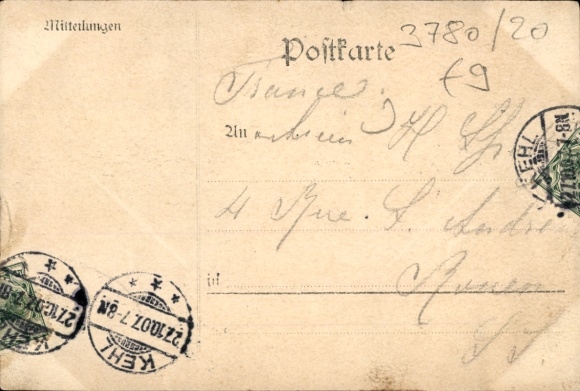 Mitteilungen
Postkarte
3780/20
€9
France
An
H
4 Rue St André
in
Rouen
KEHL
27.10.07.7-8N
KEHL
27.10.07.7-8N
KEHL
27.10.07.7-8N